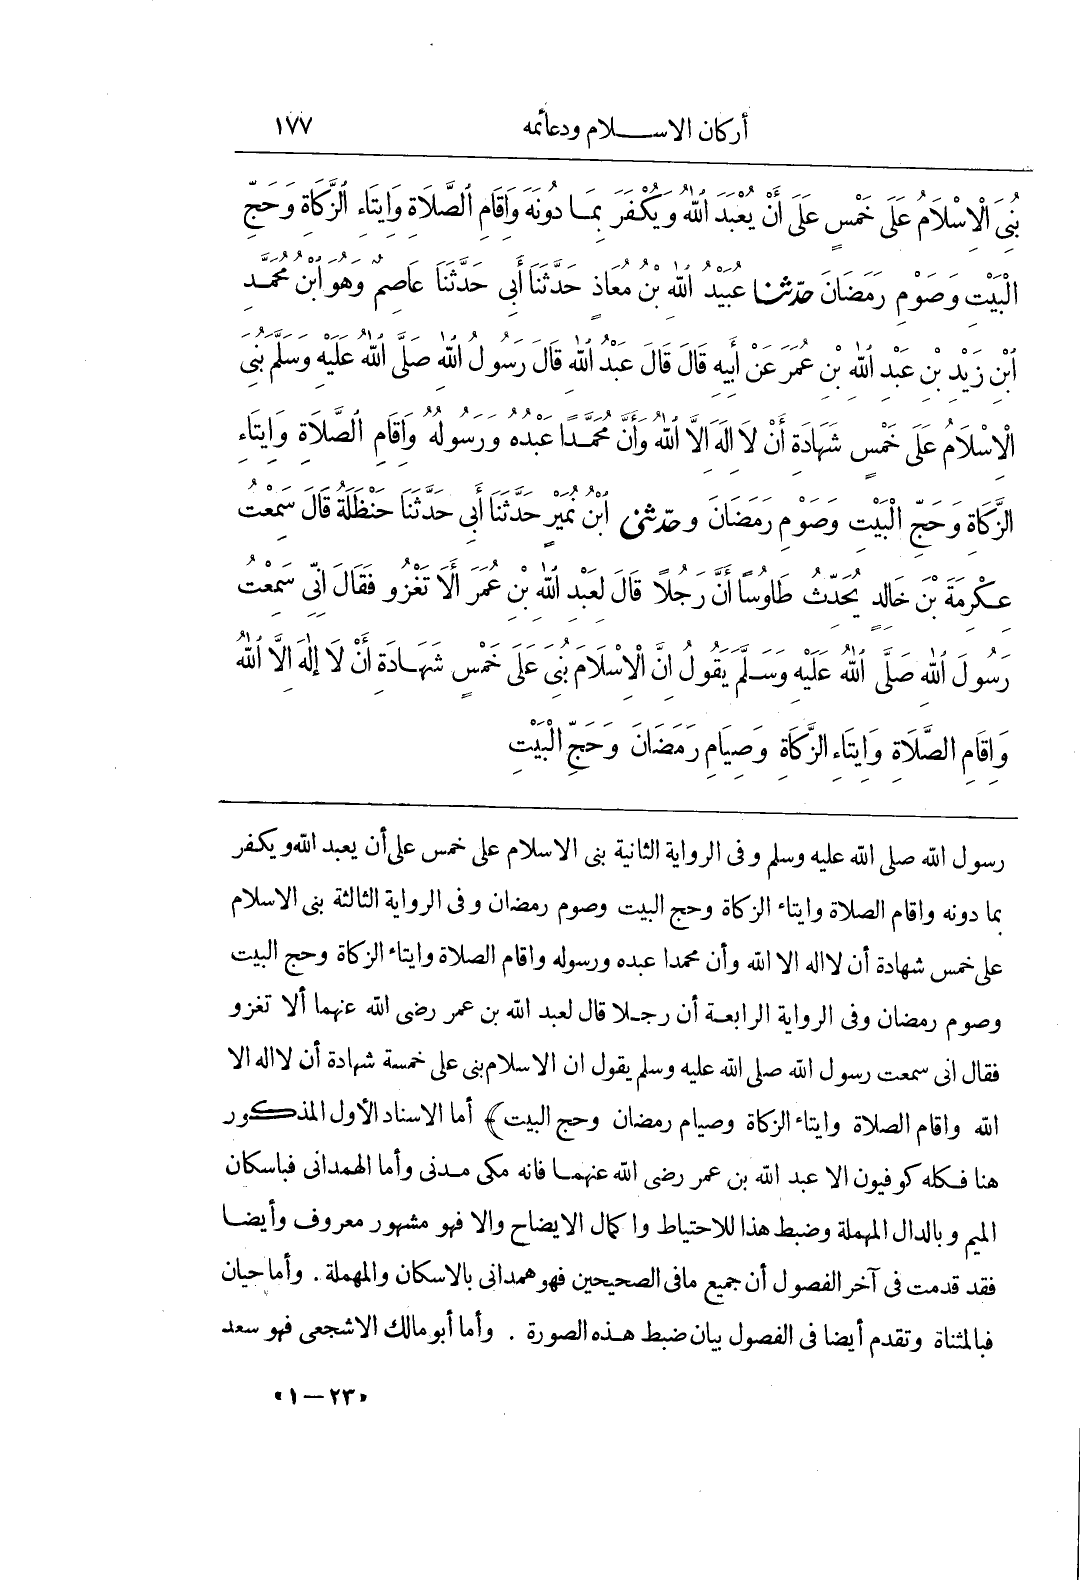 أركان الاسلام ودعائمه ١٧٧
بُنِىَ الْاِسْلَامُ عَلَى خَمْسٍ عَلَى أَنْ يُعْبَدَ اللهُ وَيُكْفَرَ بِمَا دُونَهُ وَاِقَامِ الصَّلَاةِ وَاِيتَاءِ الزَّكَاةِ وَحَجِّ
الْبَيْتِ وَصَوْمِ رَمَضَانَ حدثنا عُبَيْدُ اللهِ بْنُ مُعَاذٍ حَدَّثَنَا أَبِى حَدَّثَنَا عَاصِمٌ وَهُوَ ابْنُ مُحَمَّدِ
ابْنِ زَيْدِ بْنِ عَبْدِ اللهِ بْنِ عُمَرَ عَنْ أَبِيهِ قَالَ قَالَ عَبْدُ اللهِ قَالَ رَسُولُ اللهِ صَلَّى اللهُ عَلَيْهِ وَسَلَّمَ بُنِىَ
الْاِسْلَامُ عَلَى خَمْسٍ شَهَادَةِ أَنْ لَا اِلَهَ اِلَّا اللهُ وَأَنَّ مُحَمَّدًا عَبْدُهُ وَرَسُولُهُ وَاِقَامِ الصَّلَاةِ وَاِيتَاءِ
الزَّكَاةِ وَحَجِّ الْبَيْتِ وَصَوْمِ رَمَضَانَ وحدثنى ابْنُ نُمَيْرٍ حَدَّثَنَا أَبِى حَدَّثَنَا حَنْظَلَةُ قَالَ سَمِعْتُ
عِكْرِمَةَ بْنَ خَالِدٍ يُحَدِّثُ طَاوُسًا أَنَّ رَجُلًا قَالَ لِعَبْدِ اللهِ بْنِ عُمَرَ أَلَا تَغْزُو فَقَالَ اِنِّى سَمِعْتُ
رَسُولَ اللهِ صَلَّى اللهُ عَلَيْهِ وَسَلَّمَ يَقُولُ اِنَّ الْاِسْلَامَ بُنِىَ عَلَى خَمْسٍ شَهَادَةِ أَنْ لَا إِلٰهَ اِلَّا اللهُ
وَاِقَامِ الصَّلَاةِ وَاِيتَاءِ الزَّكَاةِ وَصِيَامِ رَمَضَانَ وَحَجِّ الْبَيْتِ
رسول الله صلى الله عليه وسلم وفى الرواية الثانية بنى الاسلام على خمس على أن يعبد الله ويكفر
بما دونه واقام الصلاة وايتاء الزكاة وحج البيت وصوم رمضان وفى الرواية الثالثة بنى الاسلام
على خمس شهادة أن لااله الا الله وأن محمدا عبده ورسوله واقام الصلاة وايتاء الزكاة وحج البيت
وصوم رمضان وفى الرواية الرابعة أن رجلا قال لعبد الله بن عمر رضى الله عنهما ألا تغزو
فقال انى سمعت رسول الله صلى الله عليه وسلم يقول ان الاسلام بنى على خمسة شهادة أن لااله الا
الله واقام الصلاة وايتاء الزكاة وصيام رمضان وحج البيت﴾ أما الاسناد الأول المذكور
هنا فكله كوفيون الا عبد الله بن عمر رضى الله عنهما فانه مكى مدنى وأما الهمدانى فباسكان
الميم وبالدال المهملة وضبط هذا للاحتياط واكمال الايضاح والا فهو مشهور معروف وأيضا
فقد قدمت فى آخر الفصول أن جميع مافى الصحيحين فهو همدانى بالاسكان والمهملة . وأما حيان
فبالمثناة وتقدم أيضا فى الفصول بيان ضبط هذه الصورة . وأما أبو مالك الاشجعى فهو سعد
«٢٣ — ١»